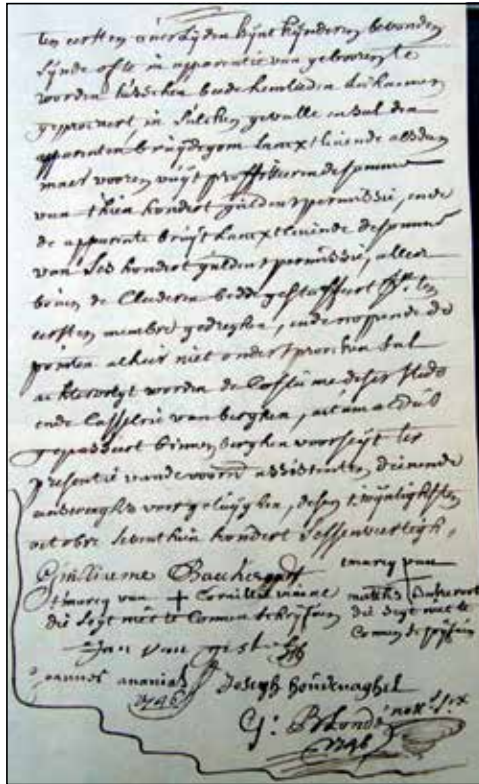 ten eersten overlyden hynt kynderen bevonden
synde ofte in apparentie van gebooren te
worden tusschen beede hemlieden
geprocreert, in sulcken gevalle en sal den
apparenten bruydegom lancxt levende alsdan
maer vooren vuyt proffiteeren de somme
van thien hondert guldens permissie, ende
de apparente bruyt lancxt levende de somme
van ses hondert guldens permissie, alles
boven de cleederen bedde gestoffeert ten
eersten membre gedreghen, ende nopende de
pointen alhier niet ondersprocken sal
achtervolgt worden de costume deser stede
ende casselrie van berghen, actum aldus
gepasseert binnen berghen voorseyt ter
presentie vande voorn assistenten dienende
voor getuyghen, desen twyntighsten
octobre seventhien hondert sessenveertigh,
Guilliaeme
tmarcq van + Cornilles
die segt niet te connen schryfven
tmarcq van
mathis
die segt niet te
connen schryfven
Jan van
Joannes ananias
1746
Joseph houdenaghel
G: Blondé nott
1746